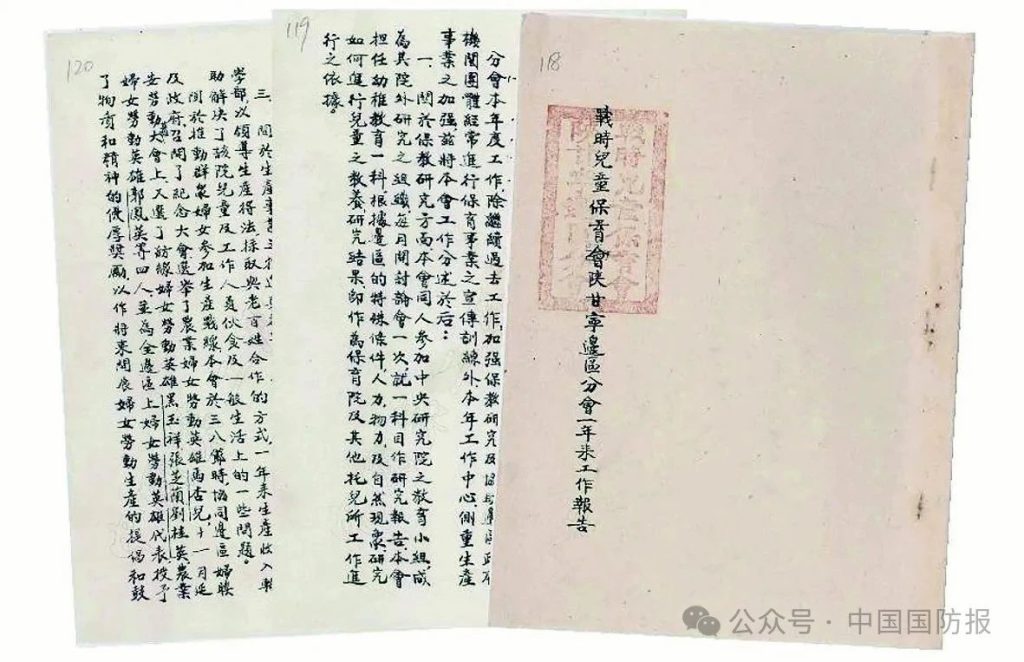 118
戰時兒童保育會陝甘寧邊區分會一年來工作報告
119
分會本年度工作，除繼續過去工作，加强保教研究及協助邊區政府
機關團體經常進行保育事業之宣傳訓練外，本年工作中心側重生產
事業之加强兹將本會工作分述於后：
一、關於保教研究方面本會同人參加中央研究院之教育小組，成
為其院外研究之組織，每月開討論會一次，就一科目作研究報告本會
担任幼稚教育一科，根據邊區的特殊條件，人力，物力，及自然現象研究
如何進行兒童之教養，研究結果即作為保育院及其他托兒所工作進
行之依據。
120
三、關於生產事業
學部，以領導生產得法採取與老百姓合作的方式一年來生產收入
助解决了該院兒童及工作人員伙食及一般生活上的一些問題。
關於推動群衆婦女參加生產戰線本會於三八節時協同邊區婦聯
及政府召開了紀念大會選舉了農業婦女勞動英雄馬杏兒，十一月延
安勞動大會上又選了紡線婦女勞動英雄黑玉祥張芝蘭劉桂英農業
婦女勞動英雄郭鳳英等四人，並為全邊區上婦女勞動英雄代表授予
了物質和精神的優厚獎勵以作將來開展婦女勞動生產的提倡和鼓
公众号 · 中国国防报